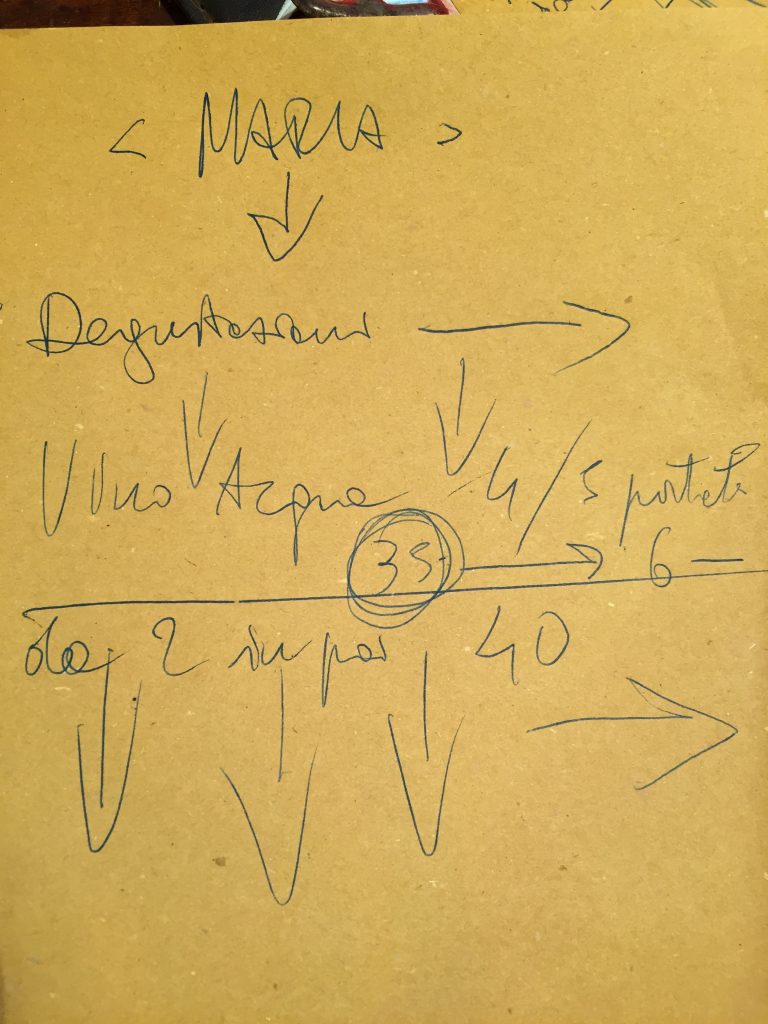 < MARIA >
Degustazioni →
Vino Acqua 4/5 portate
35 → 6 —
da 2 in poi 40